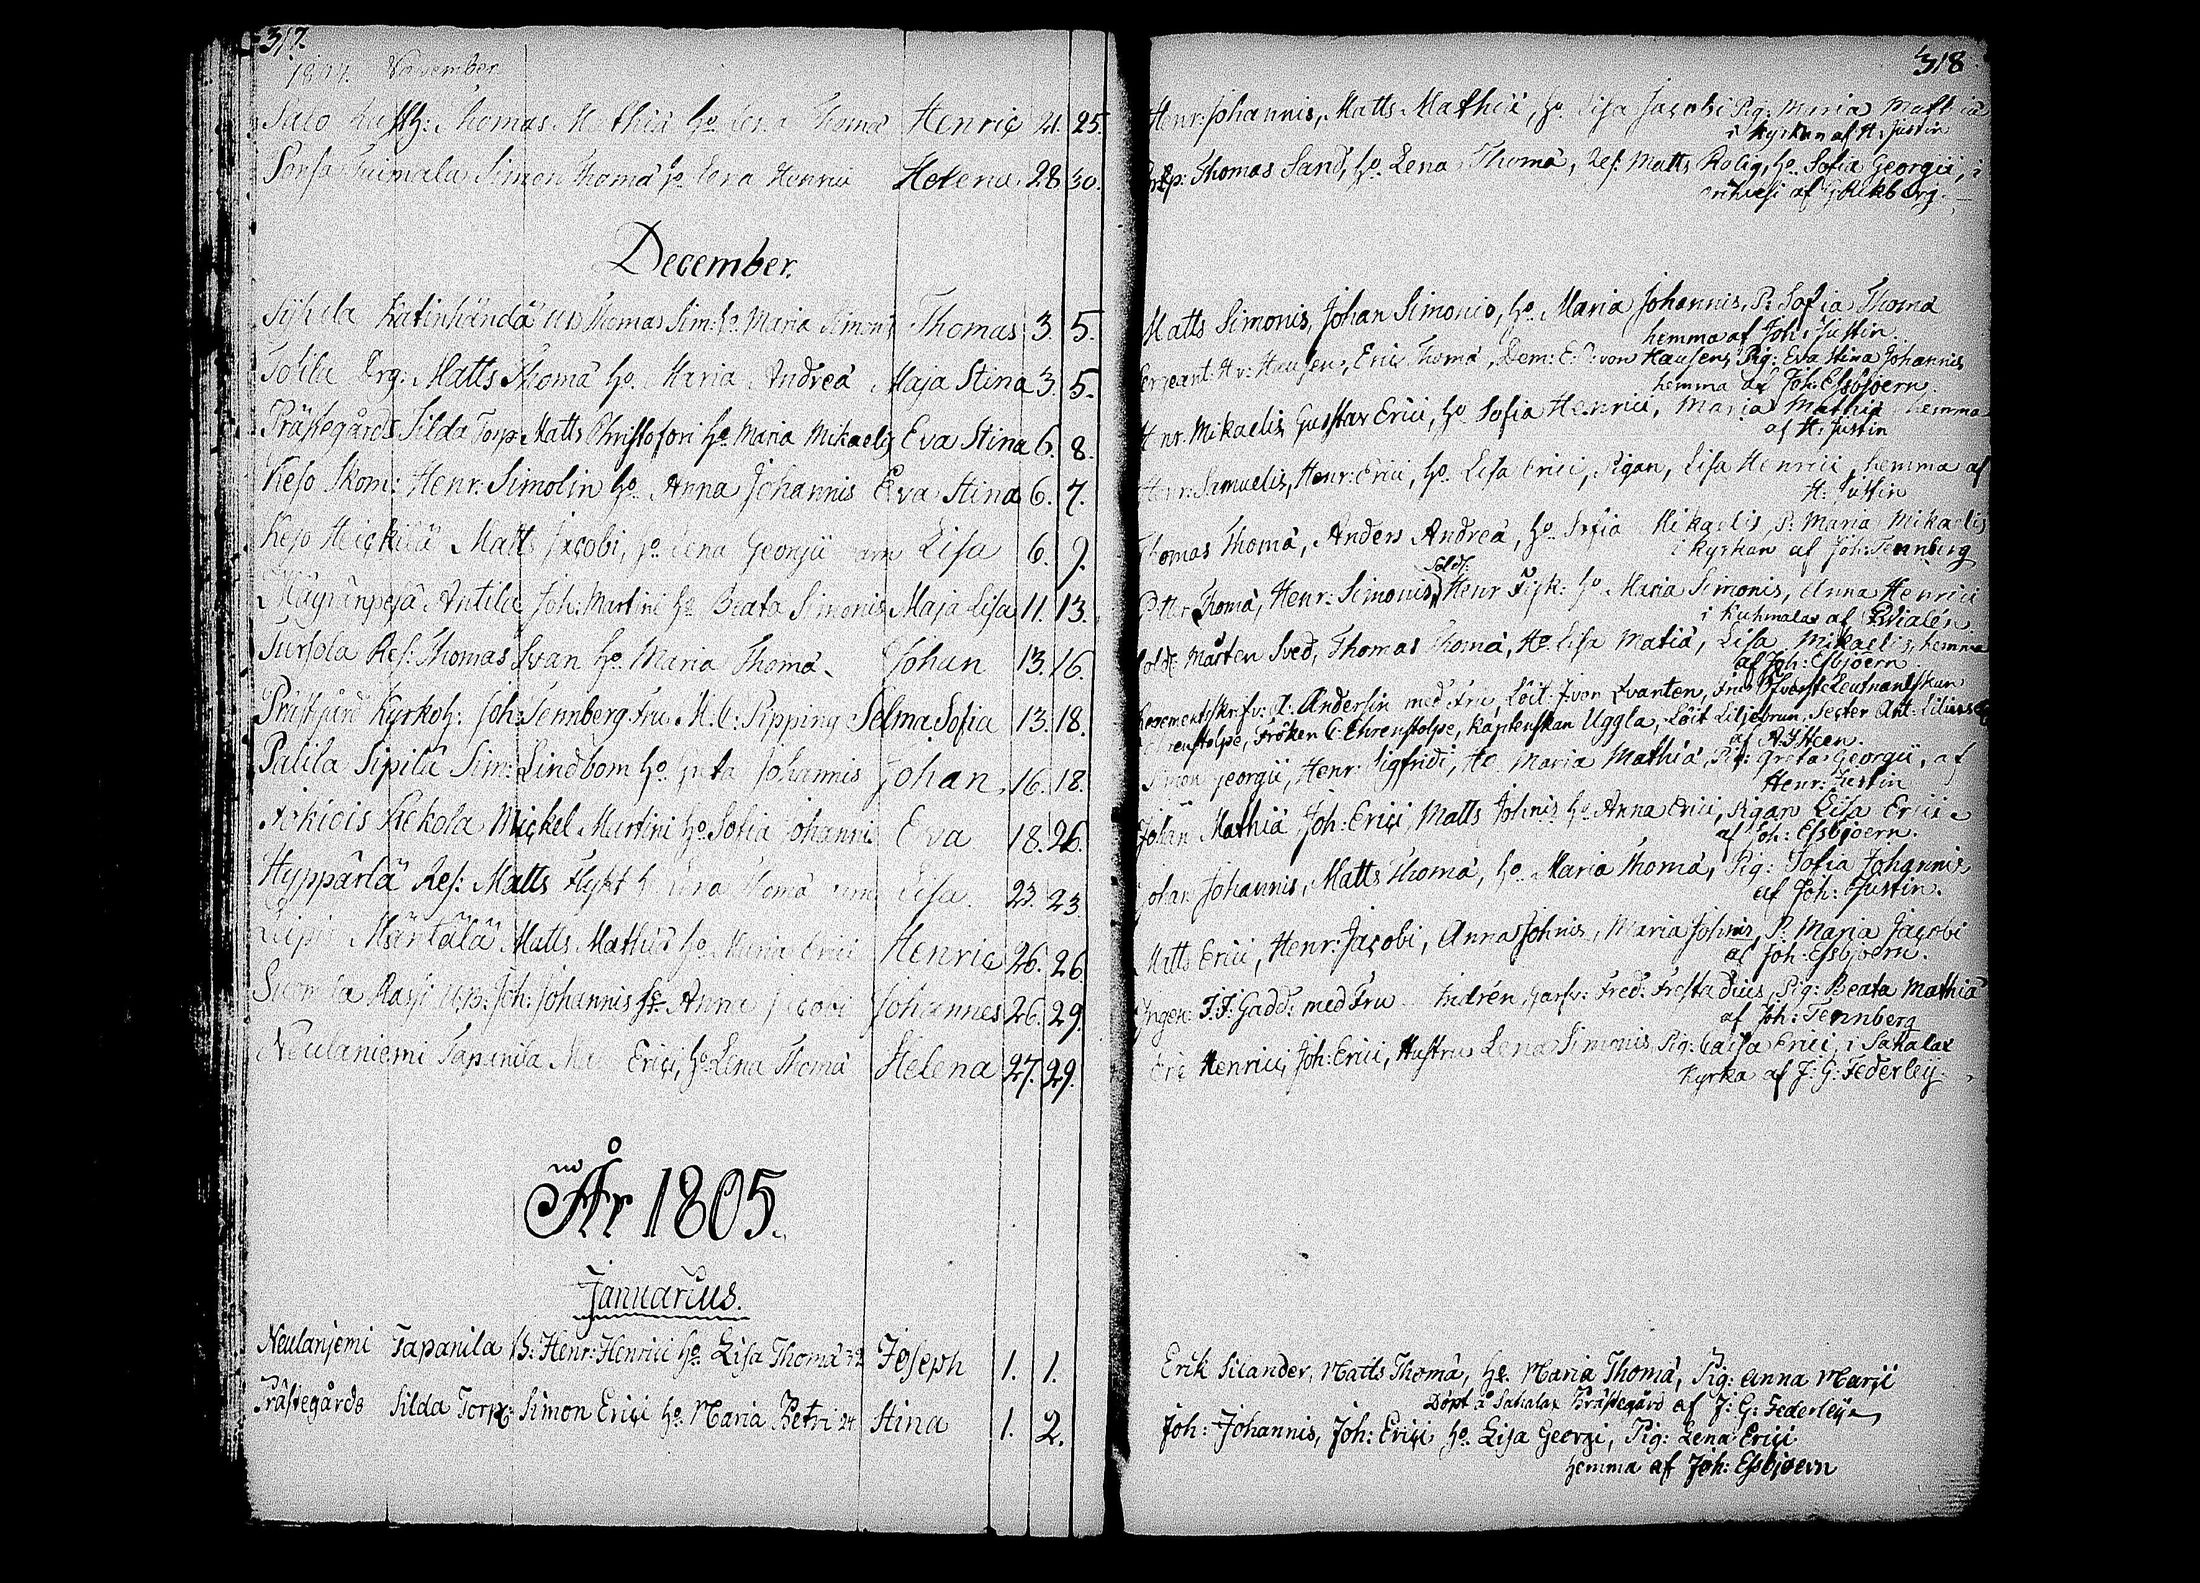 317.
November
Salo Thomas Mathiæ Ho. Thomæ Henric 21. 25.
Simon Thomæ Ho. Henrici Helena 28 30.
December.
Katinhändä Thomas Sim: Ho. Maria Simonis Thomas 3. 5.
Totila Matts Thomæ Ho. Maria Andreæ Maja Stina 3. 5.
Prästegårds Silda Torp. Matts Christofori Ho. Maria Mikaelis Eva Stina 6. 8.
Keso Skom: Henr: Simolin Ho. Anna Johannis Eva Stina 6. 7.
Keso Heickilä Matts Jacobi, Ho. Lena Georgii Lisa 6. 9.
Antila Joh: Martini Ho. Beata Simonis Maja Lisa 11. 13.
Tursola Ref: Thomas Svan Ho. Maria Thomæ Johan 13. 16.
Kyrkoh: Joh: Tennberg Fru M. C: Pipping Selma Sofia 13. 18.
Palila Sipilä Sim: Lindbom Ho. Johannis Johan 16. 18.
Mickel Martini Ho. Sofia Johannis Eva 18. 26.
Hyppärlä Ref: Matts Flykt Thomæ Lisa 23. 23
Märtälä Matts Mathiæ Ho. Maria Erici Henric 26. 26
Joh: Johannis Ho. Anna Jacobi Johannes 26. 29.
Neulaniemi Tapanila Erici, Ho. Lena Thomæ Helena 27. 29.
År 1805.
Januarius.
Neulaniemi Tapanila B: Henr: Henrici Ho. Lisa Thomæ 32 Joseph 1. 1.
Prästegårds Silda Torp: Simon Erici Ho. Maria Petri 24 Stina 1. 2.
318
Henr: Johannis, Matts Mathiæ, Ho. Lisa Jacobi Pig: Maria Mathiæ
i Kyrkan af H: Justin
Thomas Sand, Ho. Lena Thomæ, Ref: Matts Rolig, Ho. Sofia Georgii, i
Orihvesi af G:Rickberg.
Matts Simonis, Johan Simonis, Ho. Maria Johannis, P: Sofia Thomæ
hemma af Joh: Justin.
Sergeant H v: Hausen, Eric Thomæ, Dem: von Hausen, Pig: Eva Stina Johannis
hemma af Joh: Essbjoern.
Henr. Mikaelis, Gustav Erici, Ho Sofia Henrici, Maria Mathiæ hemma
af H: Justin
Henr: Samuelis, Henr: Erici, Ho. Lisa Erici, Pigan, Lisa Henrici, hemma af
H: Justin
Thomas Thomæ, Anders Andreæ, Ho. Sofia Mikaelis, P: Maria Mikaelis
i Kyrkan af Joh: Tennberg
Soldt.
Petter Thomæ, Henr: Simonis, Henr Ho Maria Simonis, Anna Henrici
i Kuhmalax af Edvalén
Soldt. Mårten Sved, Thomas Thomæ, Ho Lisa Matiæ, Lisa Mikaelis, hemma
af Joh: Esbjoern
A: Andersin med Fru, Löit: J von Qvanten, Fru Öfverste Leutnantskan
Ehrenstolpe, Fröken C: Ehrenstolpe, Kaptenskan Uggla, Löit Liljebrun,
af A:J Heen.
Simon Georgii, Henr: Sigfridi, Ho Maria Mathiæ, Pig: Greta Georgii, af
Henr: Justin
Johan Mathiæ Joh: Erici, Matts Johnis Ho. Anna Erici, Pigan Lisa Erici
af Joh: Essbjoern.
Johan Johannis, Matts Thomæ, Ho. Maria Thomæ, Pig: Sofia Johannis
af Joh: Justin.
Matts Erici, Henr: Jacobi, Anna Johnis, Maria Johnis, P: Maria Jacobi
af Joh: Essbjoern.
Ingen: J. F: Gadd: med Fru Fred: Frestadius, Pig: Beata Mathiæ
af Joh: Tennberg
Eric Henrici, Joh: Erici, Hustru Lena Simonis, Pig: Caisa Erici, i Sahalax
Kyrka af J: G: Federley.
Erik Silander, Matts Thomæ, Ho. Maria Thomæ, Pig: Anna Marii
Döpt å Sahalax Prästegård af J: G: Federley
Joh: Johannis, Joh: Erici Ho. Lisa Georgi, Pig: Lena Erici
hemma af Joh: Essbjoern